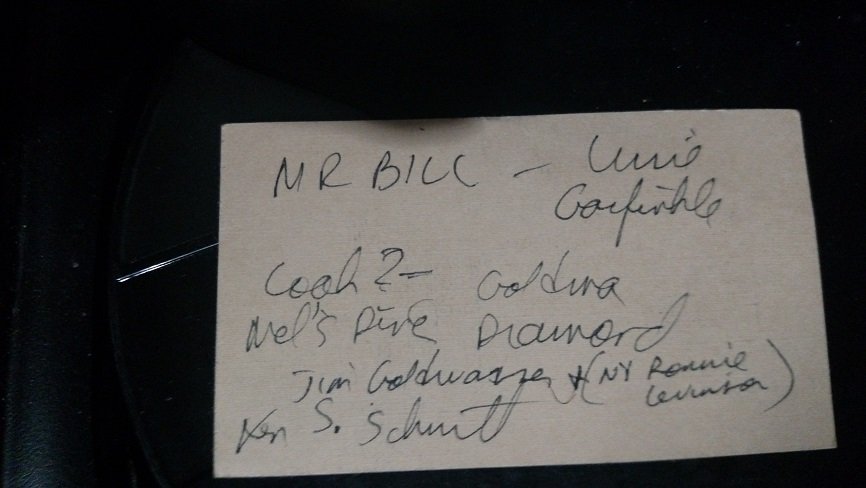 MR BILL -
Garfinkle
Cook? - Goldina
Mel's Dive Diamond
Jim Goldwasser + (NY Ronnie
Levinson)
Ken S. Schmitt